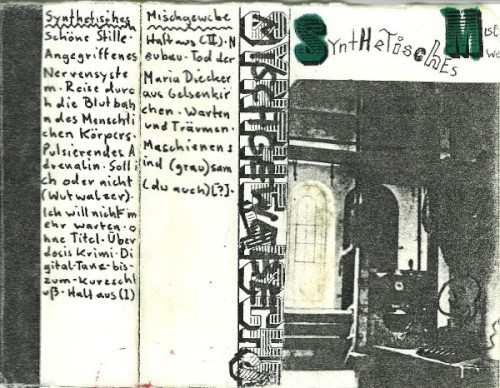 Synthetisches
Schöne Stille·
Angegriffenes
Nervensyste
m·Reise durc
h die Blutbah
n des Menschli
chen Körpers·
Pulsierendes A
drenalin·Soll i
ch oder nicht
(Wutwalzer)·
Ich will nicht m
ehr warten·o
hne Titel·Über
dosis Krimi·Di
gital-Tanz-bis-
zum-Kurzschl
uß·Halt aus (I)
Mischgewebe
Halt aus (II)·N
eubau·Tod der
Maria Diecker
aus Gelsenkir
chen·Warten
und Träumen·
Maschienen s
ind (grau)sam
(du auch)[?]·
SYNTHETISCHES